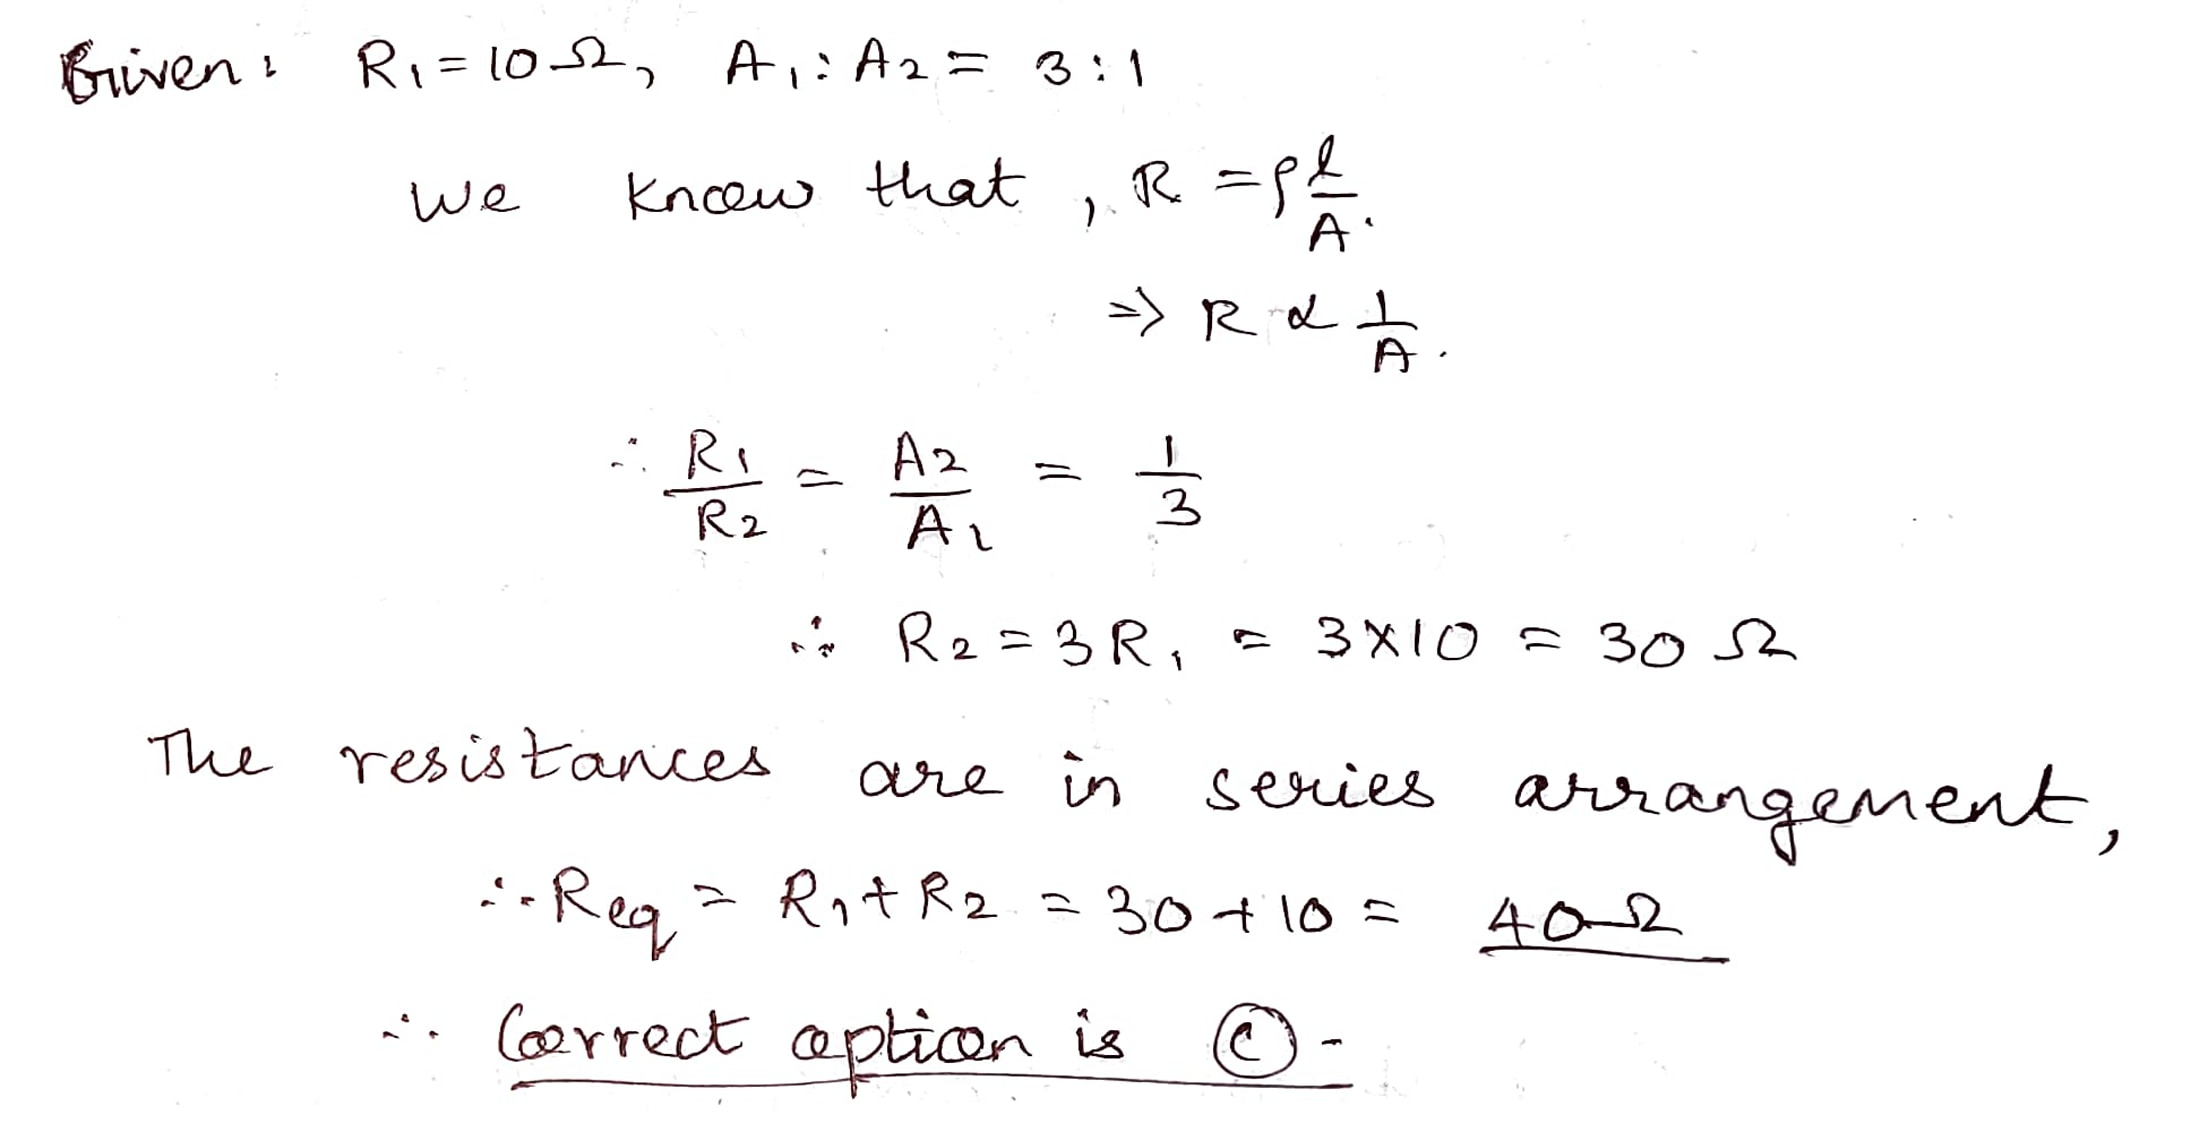 Given: R₁ = 10 Ω, A₁ : A₂ = 3 : 1
We know that, R = ρ l/A.
⇒ R ∝ 1/A.
∴ R₁/R₂ = A₂/A₁ = 1/3
∴ R₂ = 3R₁ = 3×10 = 30 Ω
The resistances are in series arrangement,
∴ Req = R₁ + R₂ = 30 + 10 = 40 Ω
∴ Correct option is (C) -